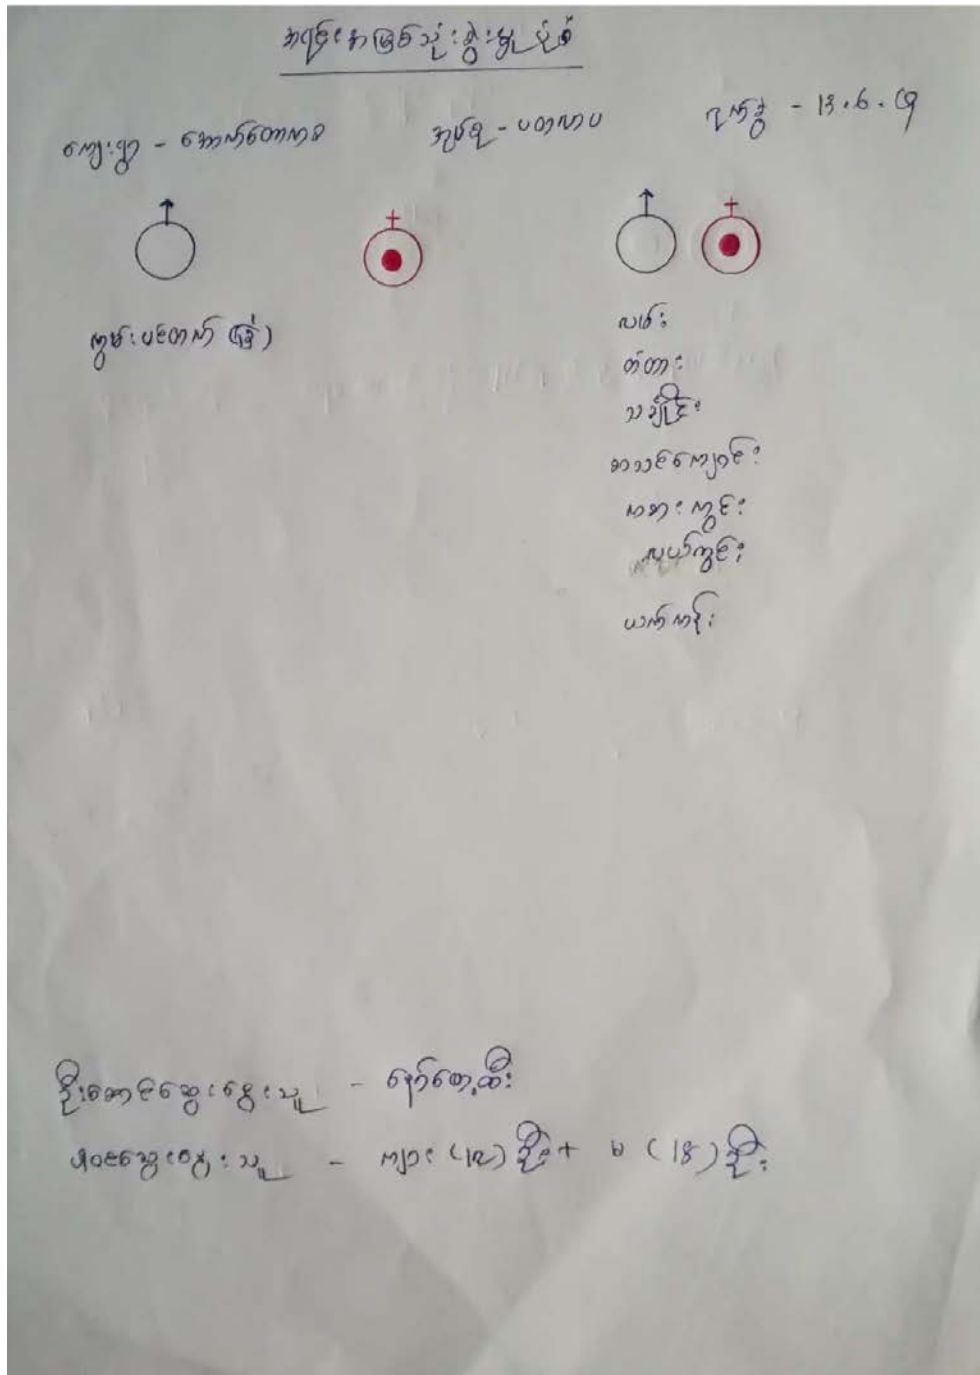 အရင်းအမြစ်သုံးစွဲမှုပုံစံ
ကျေးရွာ - အောက်တောကစ အုပ်စု - ပတလာပ ရက်စွဲ - ၁၃.၆.၁၅
ကွမ်းပင်တက် (ခြံ)
လမ်း
တံတား
သချိုင်း
စာသင်ကျောင်း
ကစားကွင်း
လယ်ကွင်း
ယက်ကန်း
ဦးဆောင်ဆွေးနွေးသူ - နော်စေ့ထီး
ပါဝင်ဆွေးနွေးသူ - ကျား (၂၃) ဦး + မ (၂၄) ဦး